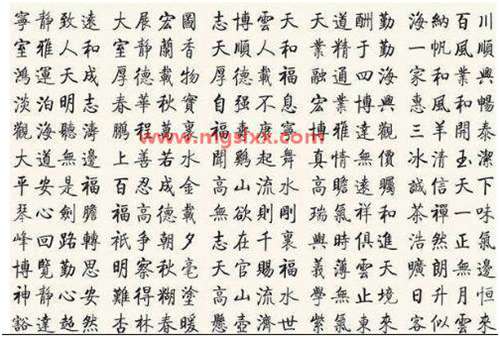 寧靜致遠 大展宏圖 志博雲天 天道酬勤 海納百川
室雅人和 室靜蘭香 順人和 精于勤 一帆風順
鴻運天成 厚德載物 厚德載福 融通四海 家和業興
淡泊明志 春華秋實 自强不息 宏業博興 惠風和暢
觀海聽濤 鵬程萬里 福壽康寧 博雅達觀 三羊開泰
大道無邊 上善若水 聞鷄起舞 真情無價 冰清玉潔
平安是福 百忍成金 高山流水 高瞻遠矚 誠信天下
琴心劍膽 福高德載 無欲則剛 瑞氣祥和 茶禪一味
峰回路轉 祇爭朝夕 志在千裏 與時俱進 浩然正氣
博覽勤思 明察秋毫 天官賜福 義薄雲天 曠朗無邊
神靜心安 難得糊塗 高山流水 學無止境 日升月恒
豁達超然 杏林春暖 懸壺濟世 紫氣東來 客似雲來
www.mgslxx.com